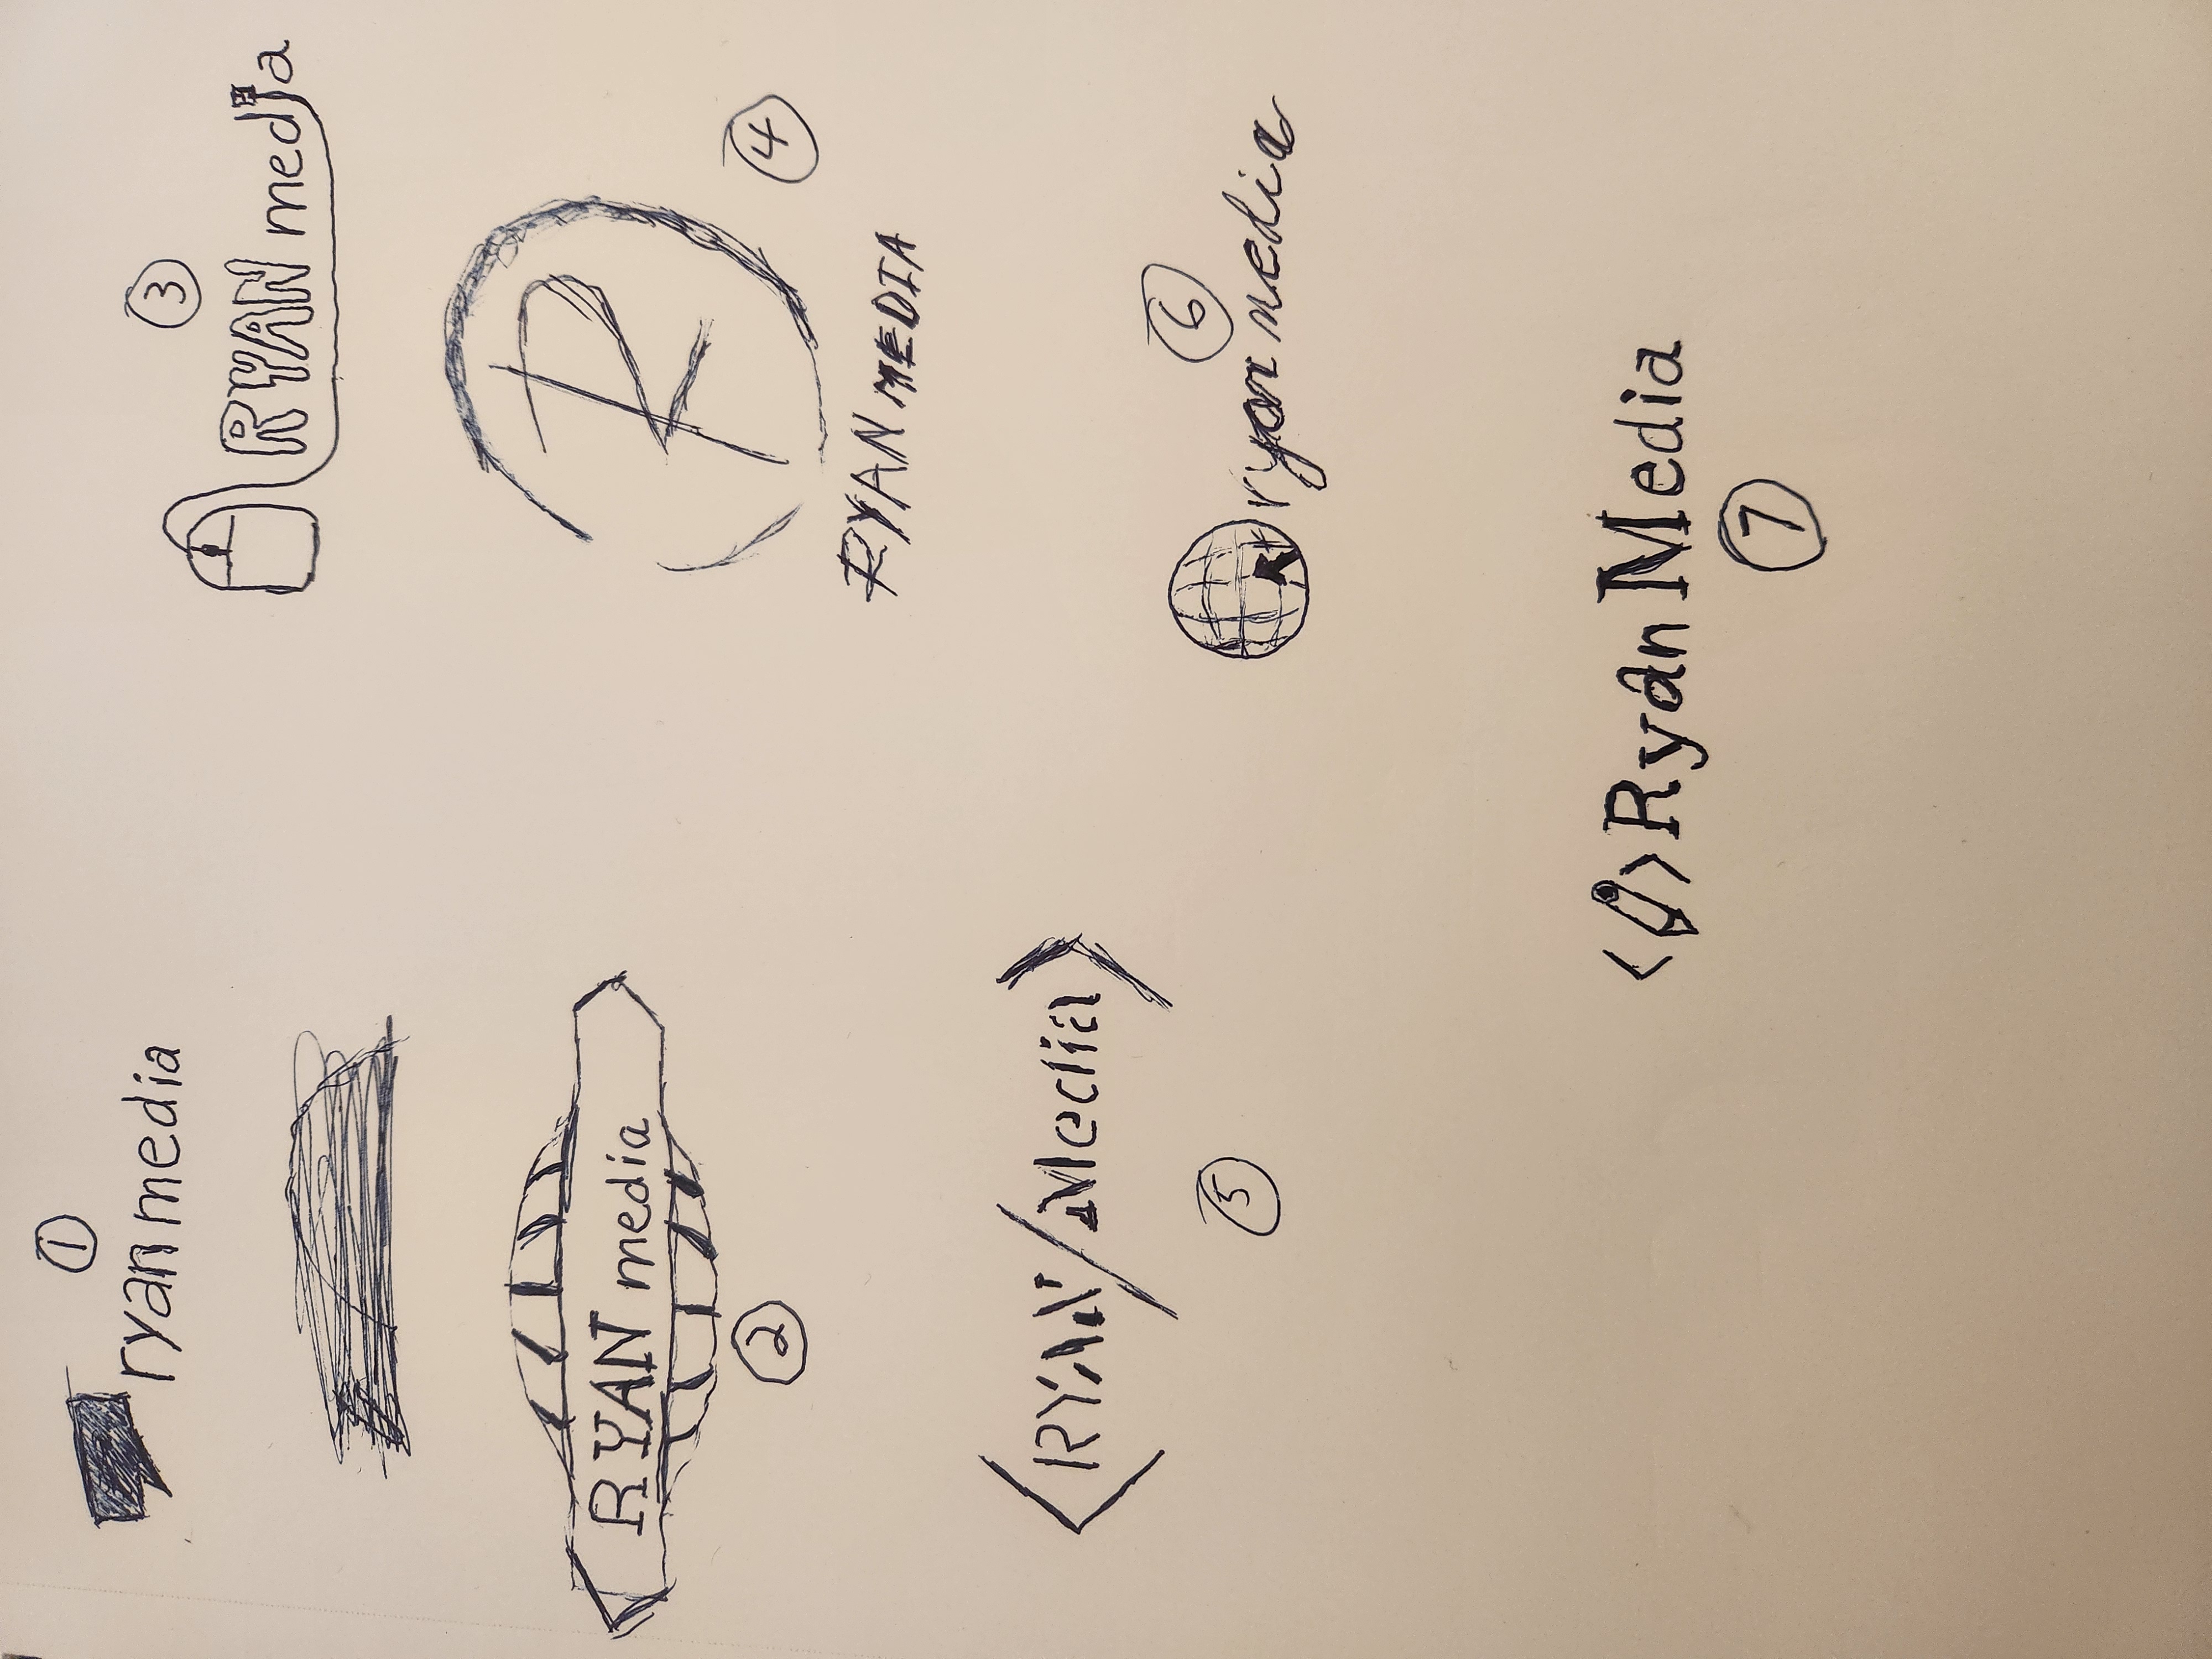 1
ryan media
3
RYAN media
RYAN media
2
R
4
RYAN MEDIA
<RYAN/Media>
5
6
ryan media
< > Ryan Media
7